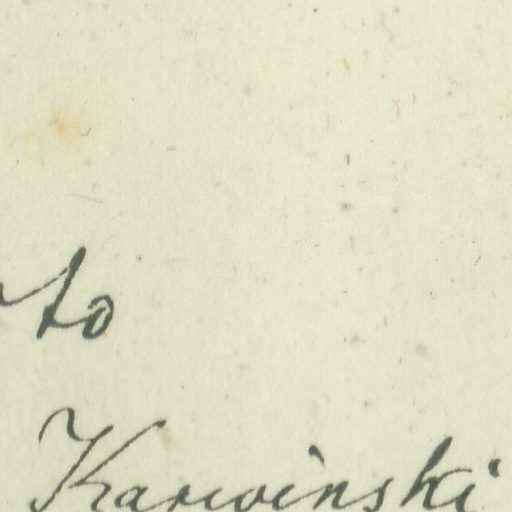 to
Karwinski